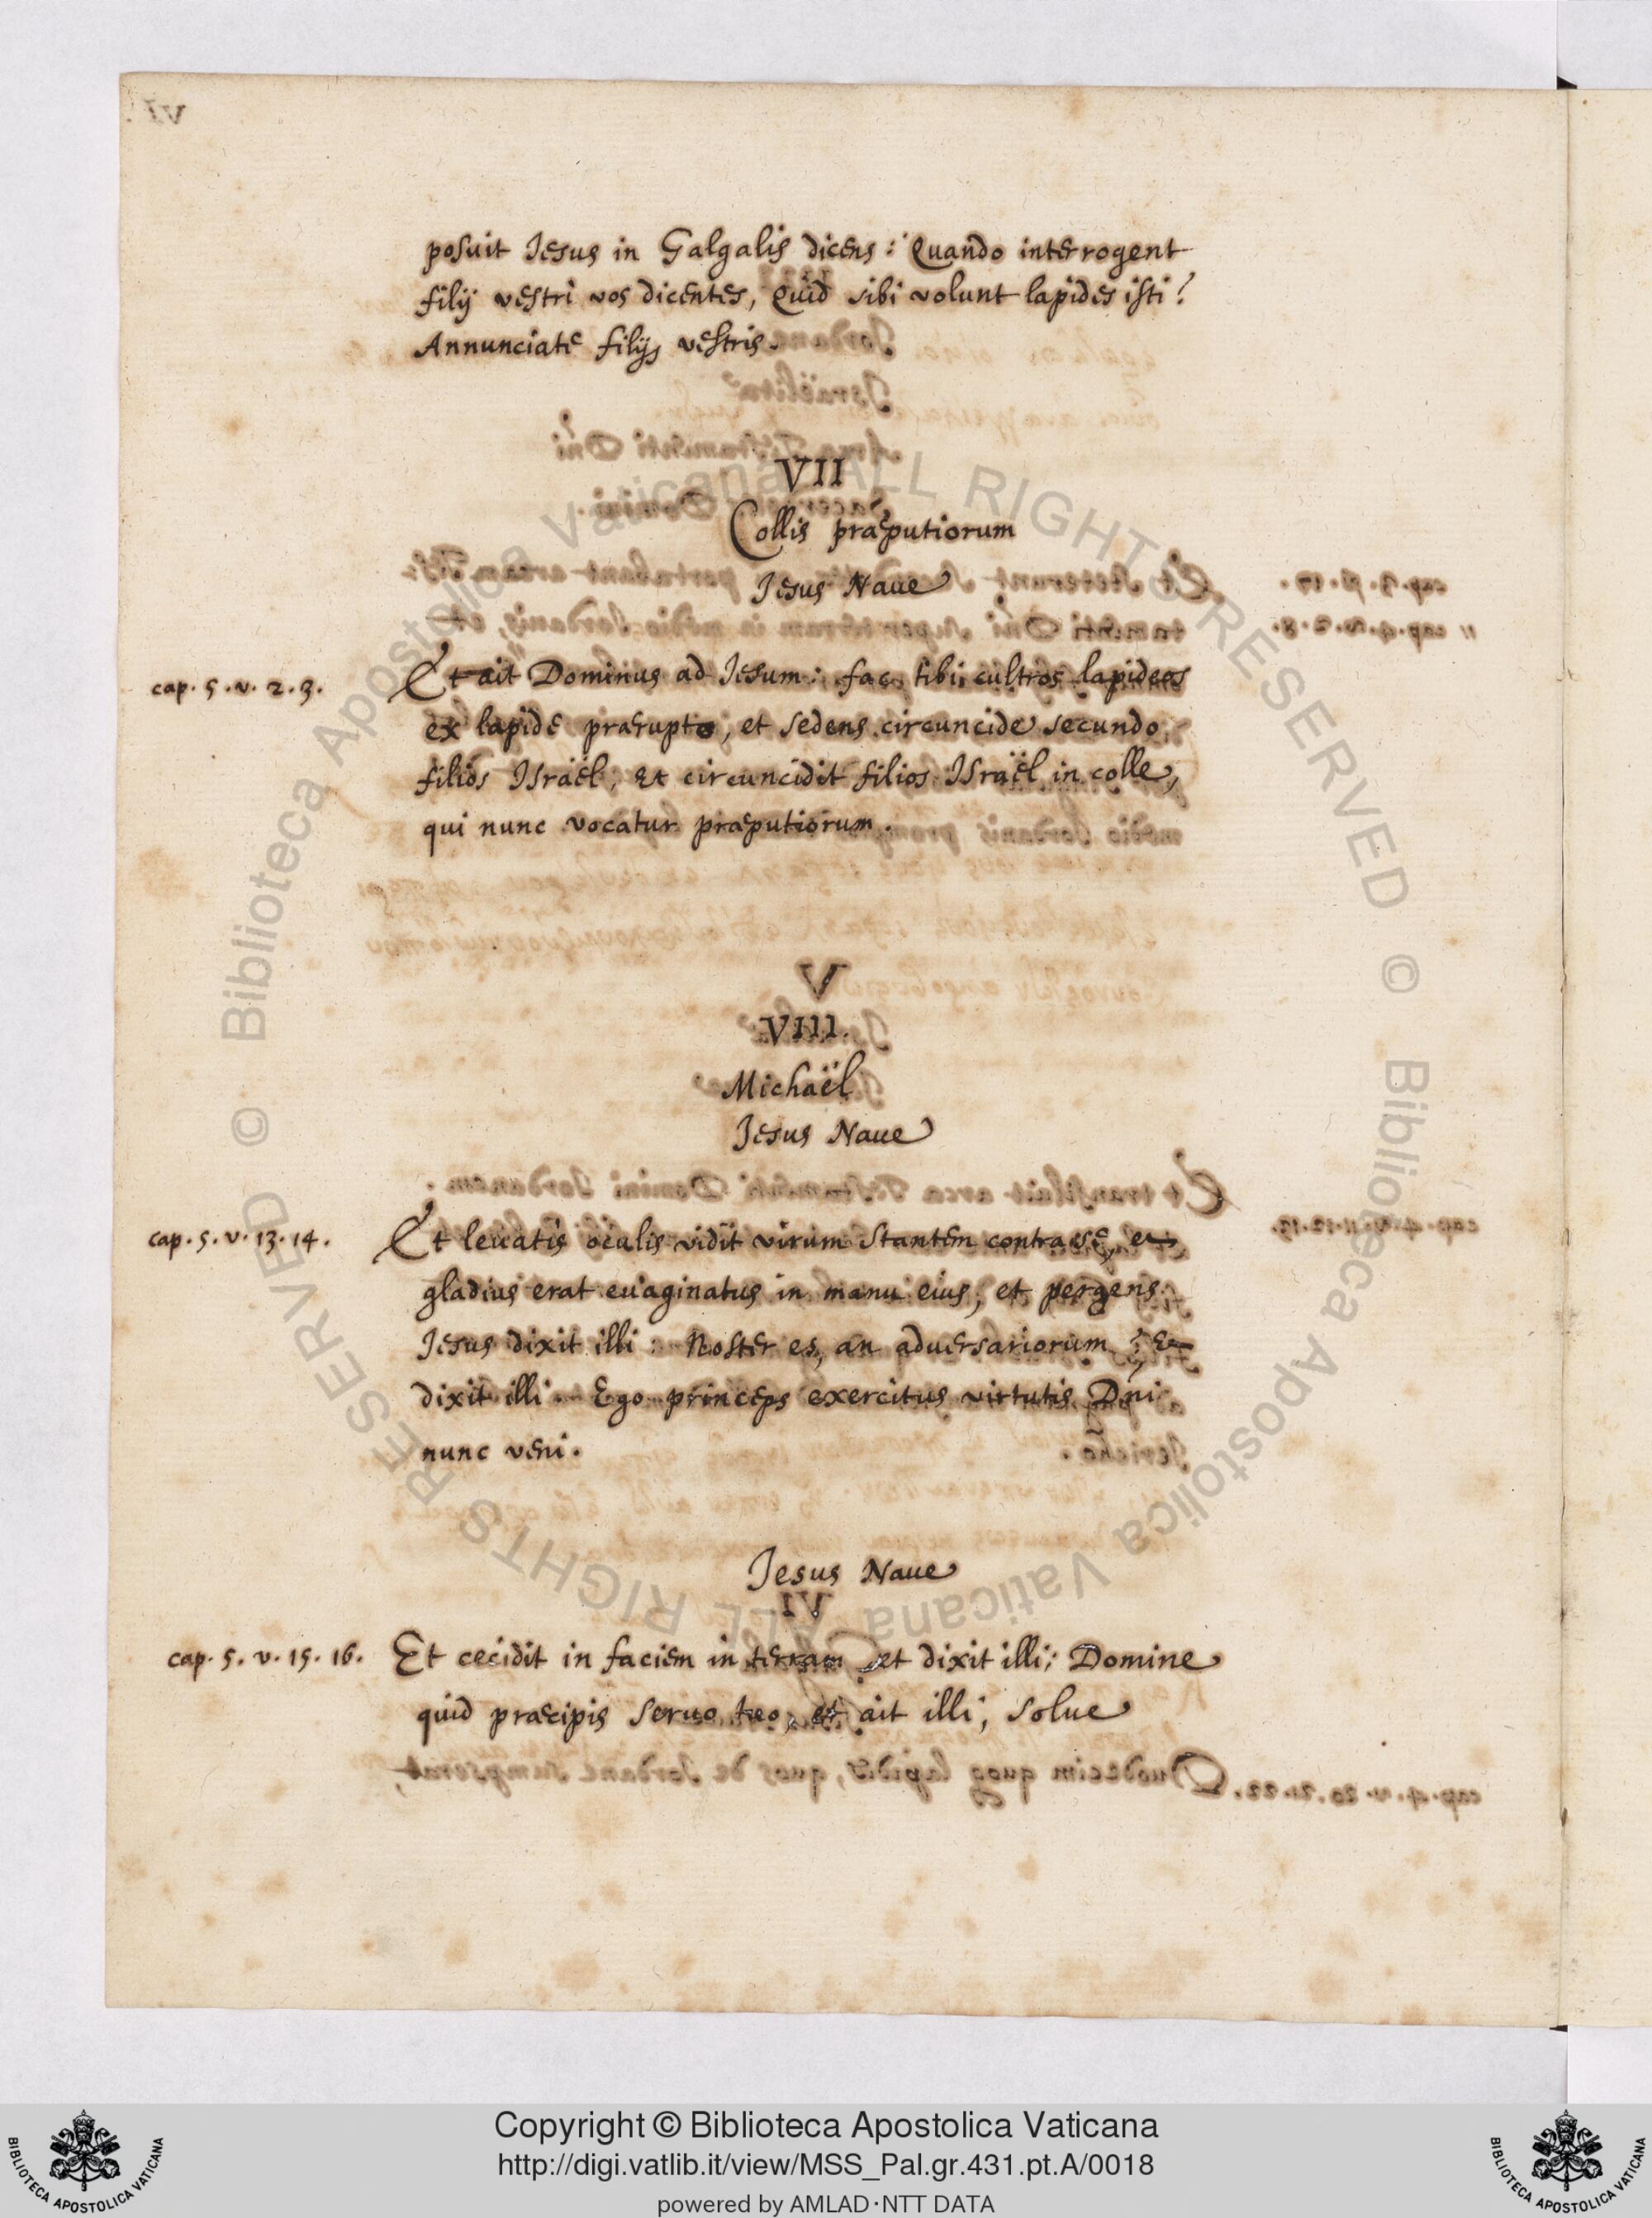 posuit Iesus in Galgalis dicens: Quando interrogent
filij vestri vos dicentes, Quid sibi volunt lapides isti?
Annunciate filijs vestris.
VII
Collis præputiorum
Iesus Naue
cap. 5. v. 2. 3.
Et ait Dominus ad Iesum: fac tibi cultros lapideos
ex lapide prærupto, et sedens circuncide secundo
filios Israël, Et circuncidit filios Israël in colle,
qui nunc vocatur præputiorum.
VIII.
Michaël
Iesus Naue
cap. 5. v. 13. 14.
Et leuatis oculis vidit virum stantem contra se, et
gladius erat euaginatus in manu eius, et pergens
Iesus dixit illi: Noster es, an aduersariorum? Et
dixit illi. Ego princeps exercitus virtutis Dñi
nunc veni.
Iesus Naue
cap. 5. v. 15. 16.
Et cecidit in faciem in terram et dixit illi; Domine
quid præcipis seruo tuo, et ait illi; solue
Copyright © Biblioteca Apostolica Vaticana
http://digi.vatlib.it/view/MSS_Pal.gr.431.pt.A/0018
powered by AMLAD·NTT DATA
BIBLIOTECA APOSTOLICA VATICANA
BIBLIOTECA APOSTOLICA VATICANA
© Biblioteca Apostolica Vaticana ALL RIGHTS RESERVED
© Biblioteca Apostolica Vaticana ALL RIGHTS RESERVED